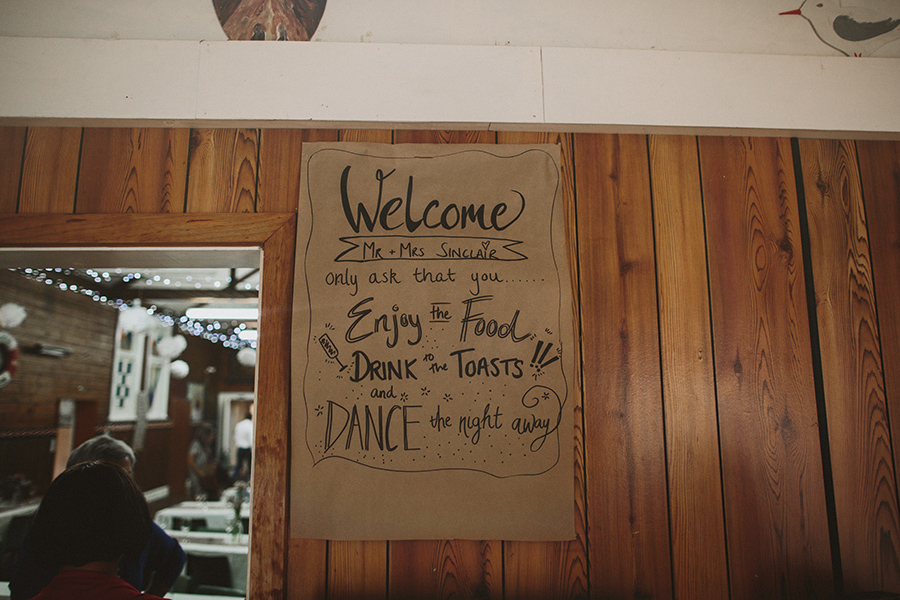 Welcome
Mr + Mrs Sinclair
only ask that you......
Enjoy the Food
Drink to the Toasts !!!
and
Dance the night away